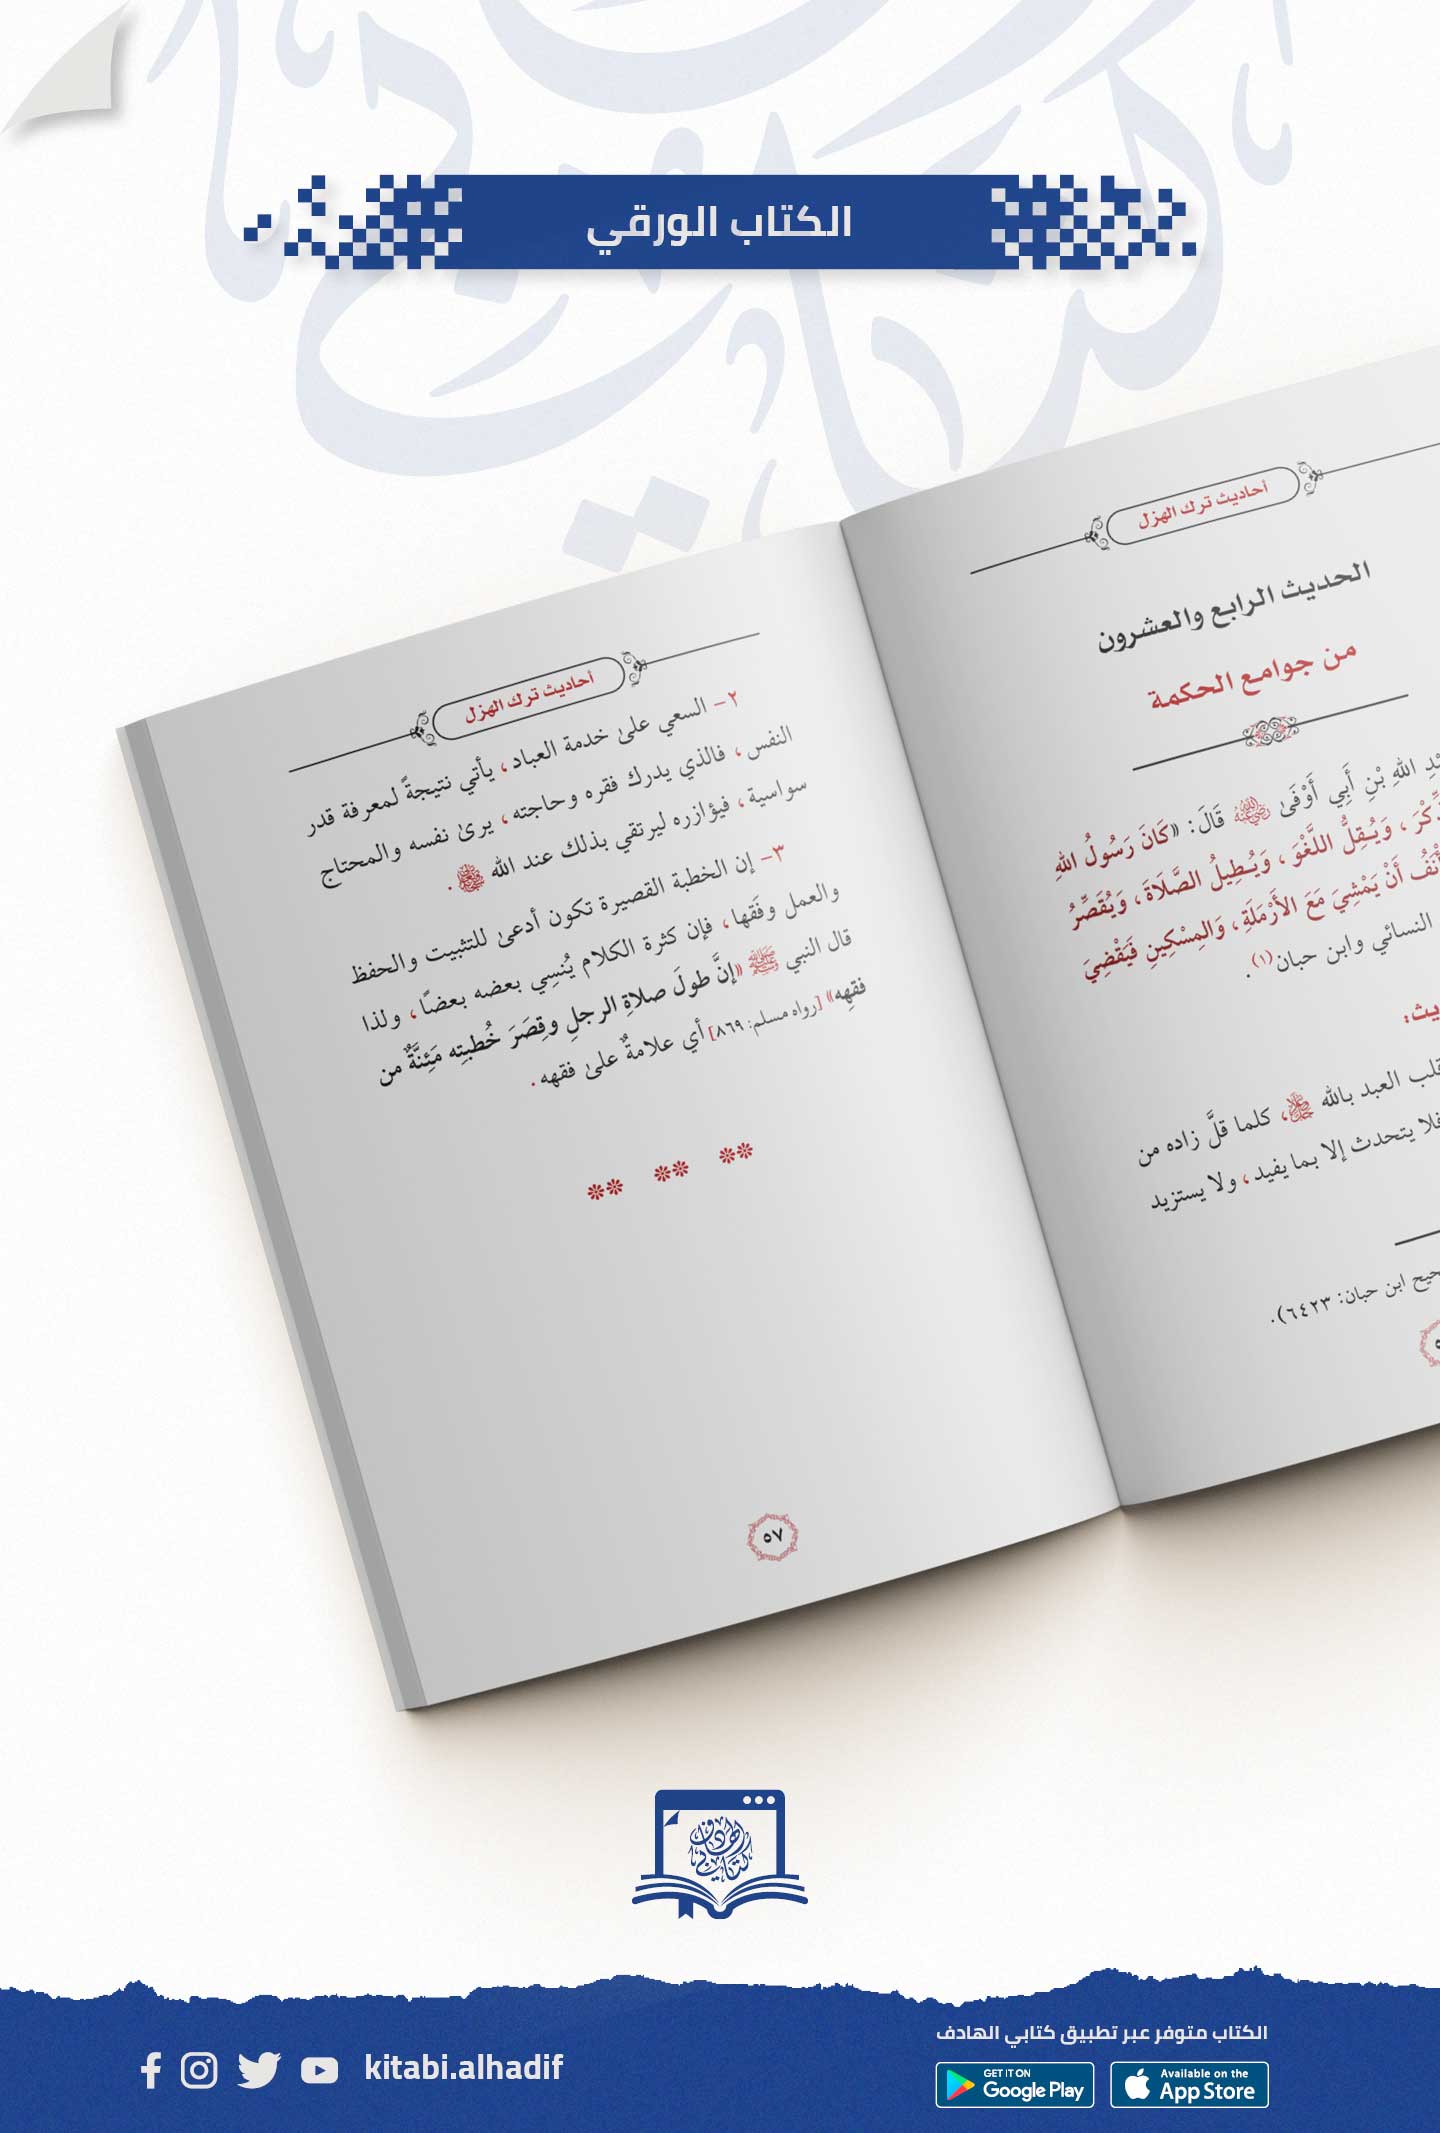 الكتاب الورقي
أحاديث ترك الهزل
الحديث الرابع والعشرون
من جوامع الحكمة
اللهِ بْنِ أَبِي أَوْفَىٰ رضي الله عنه قَالَ: «كَانَ رَسُولُ اللهِ
وَيُقِلُّ اللَّغْوَ، وَيُطِيلُ الصَّلَاةَ، وَيُقَصِّرُ
أَنْ يَمْشِيَ مَعَ الأَرْمَلَةِ، وَالمِسْكِينِ فَيَقْضِيَ
النسائي وابن حبان(١).
قلب العبد بالله ﷻ، كلما قلَّ زاده من
فلا يتحدث إلا بما يفيد، ولا يستزيد
ابن حبان: ٦٤٢٣).
أحاديث ترك الهزل
٢- السعي علىٰ خدمة العباد، يأتي نتيجةً لمعرفة قدر
النفس، فالذي يدرك فقره وحاجته، يرىٰ نفسه والمحتاج
سواسية، فيؤازره ليرتقي بذلك عند الله .
٣- إن الخطبة القصيرة تكون أدعىٰ للتثبيت والحفظ
والعمل وفَقها، فإن كثرة الكلام يُنسِي بعضه بعضًا، ولذا
قال النبي ﷺ «إنَّ طولَ صلاةِ الرجلِ وقِصَرَ خُطبتِه مَئِنَّةٌ من
فقهِه» [رواه مسلم: ٨٦٩] أي علامةٌ علىٰ فقهه.
٥٧
كتابي الهادف
الكتاب متوفر عبر تطبيق كتابي الهادف
kitabi.alhadif
GET IT ON
Google Play
Available on the
App Store